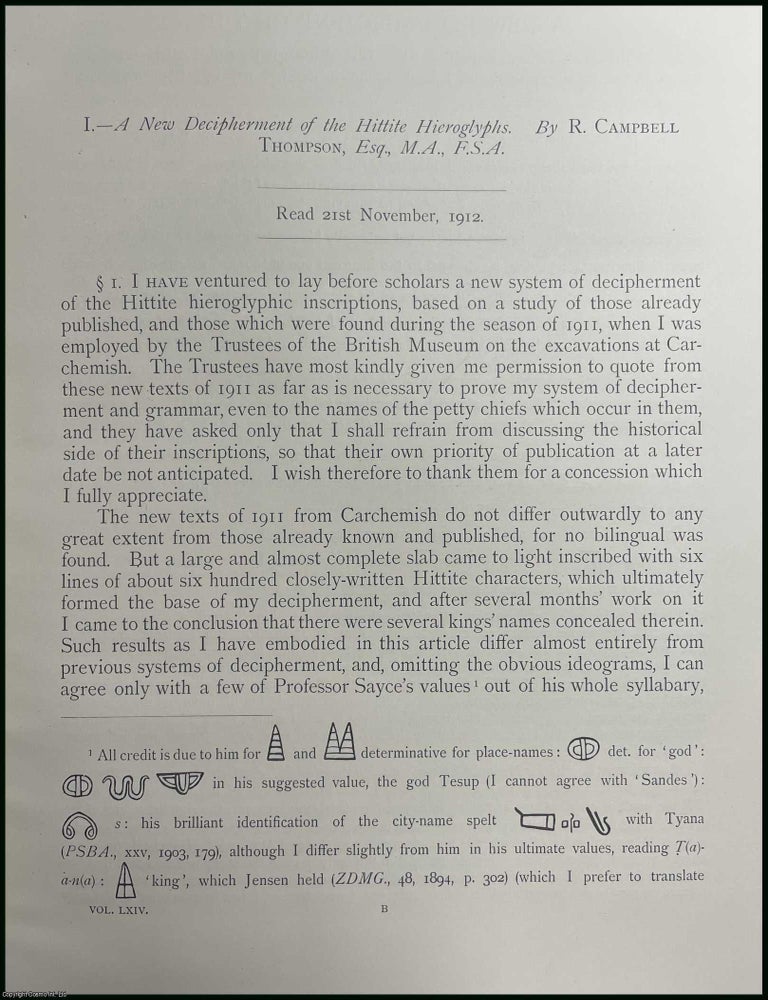 I.—A New Decipherment of the Hittite Hieroglyphs. By R. CAMPBELL
THOMPSON, Esq., M.A., F.S.A.
Read 21st November, 1912.
§ 1. I HAVE ventured to lay before scholars a new system of decipherment
of the Hittite hieroglyphic inscriptions, based on a study of those already
published, and those which were found during the season of 1911, when I was
employed by the Trustees of the British Museum on the excavations at Car-
chemish. The Trustees have most kindly given me permission to quote from
these new texts of 1911 as far as is necessary to prove my system of decipher-
ment and grammar, even to the names of the petty chiefs which occur in them,
and they have asked only that I shall refrain from discussing the historical
side of their inscriptions, so that their own priority of publication at a later
date be not anticipated. I wish therefore to thank them for a concession which
I fully appreciate.
The new texts of 1911 from Carchemish do not differ outwardly to any
great extent from those already known and published, for no bilingual was
found. But a large and almost complete slab came to light inscribed with six
lines of about six hundred closely-written Hittite characters, which ultimately
formed the base of my decipherment, and after several months' work on it
I came to the conclusion that there were several kings' names concealed therein.
Such results as I have embodied in this article differ almost entirely from
previous systems of decipherment, and, omitting the obvious ideograms, I can
agree only with a few of Professor Sayce's values ¹ out of his whole syllabary,
¹ All credit is due to him for and determinative for place-names : det. for 'god' :
in his suggested value, the god Tesup (I cannot agree with 'Sandes') :
s : his brilliant identification of the city-name spelt with Tyana
(PSBA., xxv, 1903, 179), although I differ slightly from him in his ultimate values, reading T(a)-
a-n(a) : 'king', which Jensen held (ZDMG., 48, 1894, p. 302) (which I prefer to translate
VOL. LXIV. B
Copyright Cosmo Int. Ltd